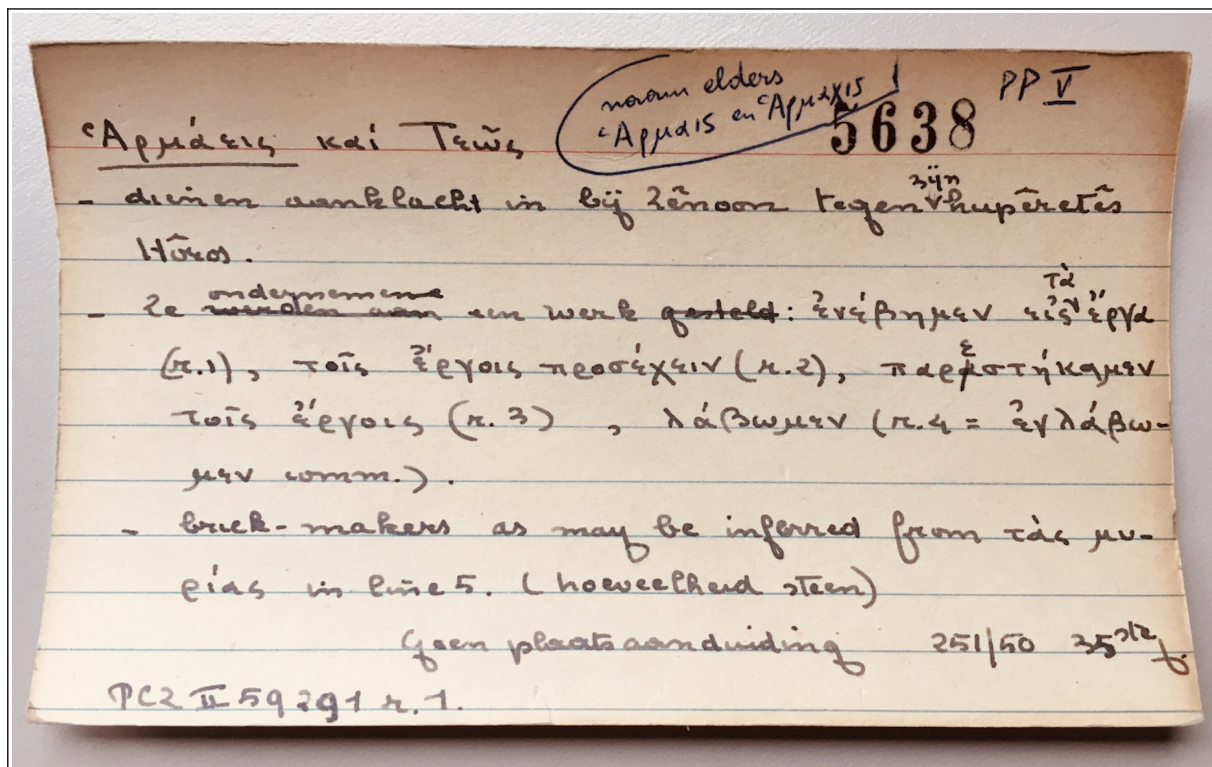 naam elders
Ἁρμαις en Ἁρμαχις !
PP V
5638
Ἁρμάεις καί Τεῶς
- dienen aanklacht in bij Zênoon tegen zijn hupêretês
Hôros.
- Ze ondernemen werden aan een werk gesteld: ἐνέβημεν εἰς τὰ ἔργα
(r.1), τοῖς ἔργοις προσέχειν (r.2), παρεστήκαμεν
τοῖς ἔργοις (r.3), λάβωμεν (r.4 = ἐγλάβω-
μεν comm.).
- brick-makers as may be inferred from τὰς μυ-
ρίας in line 5. (hoeveelheid steen)
Geen plaatsaanduiding 251/50 35ste j.
PCZ II 59291 r.1.